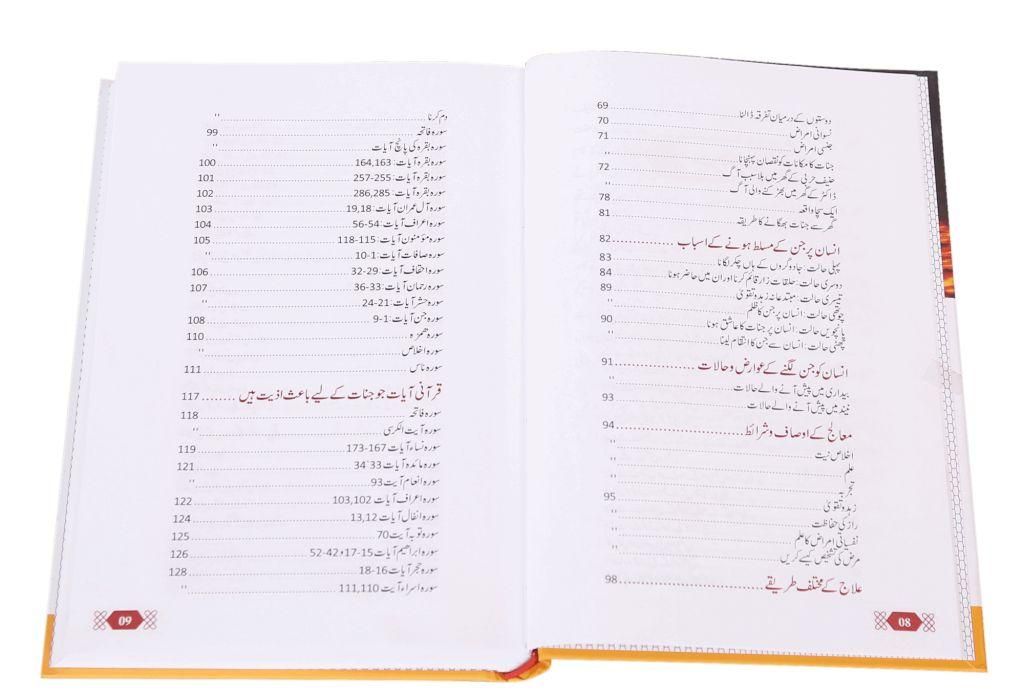 دوستوں کے درمیان تفرقہ ڈالنا 69
نسوانی امراض 70
جنسی امراض 71
جنات کا مکانات کو نقصان پہنچانا "
حنیف حربی کے گھر میں بلا سبب آگ 72
ڈاکٹر کے گھر میں بھڑکنے والی آگ "
ایک سچا واقعہ 78
گھر سے جنات بھگانے کا طریقہ 81
انسان پر جن کے مسلط ہونے کے اسباب 82
پہلی حالت: جادوگروں کے ہاں چکر لگانا 83
دوسری حالت: حلقات زار قائم کرنا اور ان میں حاضر ہونا 84
تیسری حالت: مبتدعانہ زہد و تقویٰ 89
چوتھی حالت: انسان پر جن کا ظلم "
پانچویں حالت: انسان پر جنات کا عاشق ہونا 90
چھٹی حالت: انسان سے جن کا انتقام لینا "
انسان کو جن لگنے کے عوارض و حالات 91
بیداری میں پیش آنے والے حالات "
نیند میں پیش آنے والے حالات 93
معالج کے اوصاف و شرائط 94
اخلاص نیت "
علم "
تجربہ "
زہد و تقویٰ 95
راز کی حفاظت "
نفسیاتی امراض کا علم "
مرض کی تشخیص کیسے کریں "
علاج کے مختلف طریقے 98
08
دم کرنا "
سورہ فاتحہ 99
سورہ بقرہ کی پانچ آیات "
سورہ بقرہ آیات: 164,163 100
سورہ بقرہ آیات: 255-257 101
سورہ بقرہ آیات: 286,285 102
سورہ آل عمران آیات: 19,18 103
سورہ اعراف آیات: 54-56 104
سورہ مؤمنون آیات: 115-118 105
سورہ صافات آیات: 1-10 "
سورہ احقاف آیات: 29-32 106
سورہ رحمان آیات: 33-36 107
سورہ حشر آیات: 21-24 "
سورہ جن آیات: 1-9 108
سورہ ھمزہ 110
سورہ اخلاص "
سورہ ناس 111
قرآنی آیات جو جنات کے لیے باعث اذیت ہیں 117
سورہ فاتحہ 118
سورہ آیت الکرسی "
سورہ نساء آیات 167-173 119
سورہ مائدہ آیات 33`34 121
سورہ انعام آیت 93 "
سورہ اعراف آیات 103,102 122
سورہ انفال آیات 13,12 124
سورہ توبہ آیت 70 125
سورہ ابراھیم آیات 15-17، 42-52 126
سورہ حجر آیات 16-18 128
سورہ اسراء آیت 111,110 "
09